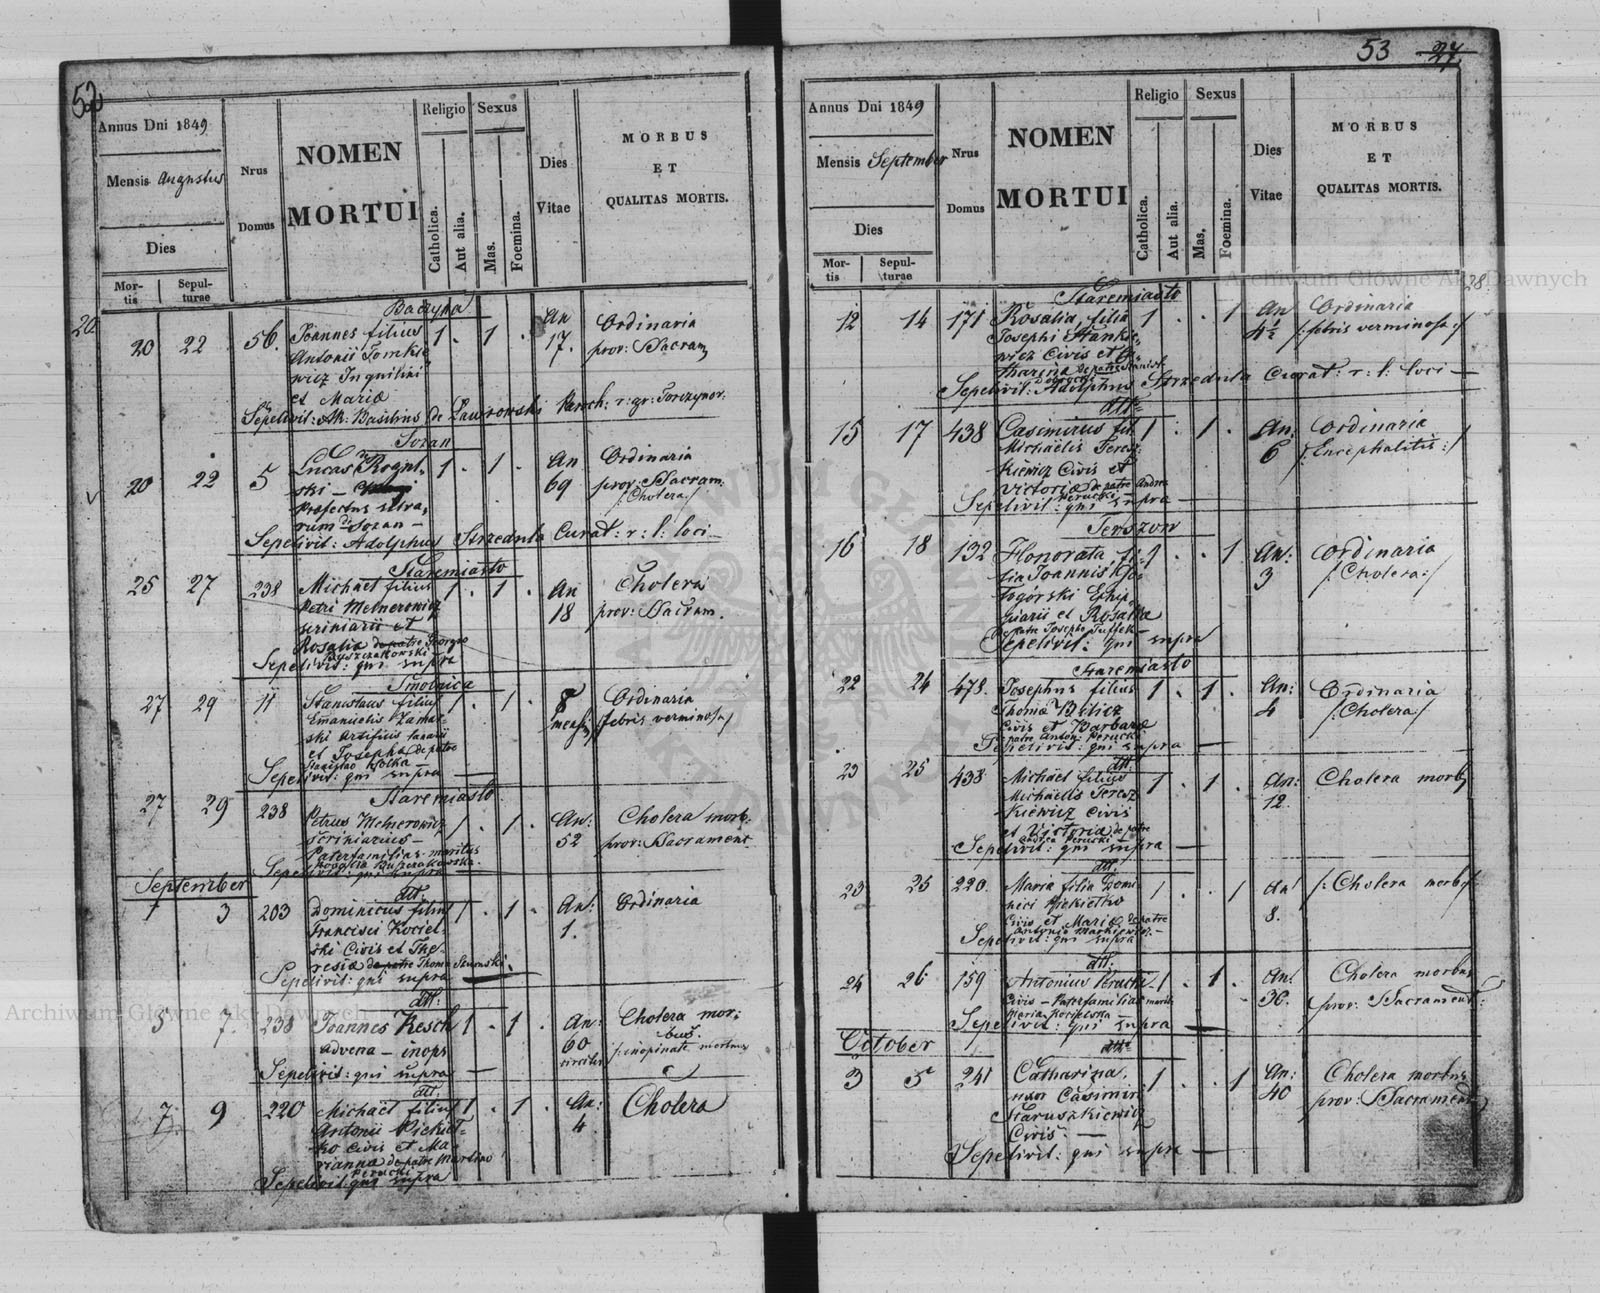 52
Annus Dni 1849
Mensis Augustus
Dies
Mortis
Sepulturae
Nrus
Domus
NOMEN
MORTUI
Religio
Catholica.
Aut alia.
Sexus
Mas.
Foemina.
Dies
Vitae
MORBUS
ET
QUALITAS MORTIS.
Baczyna
20 22 56. Joannes filius 1 . 1 . An 17. Ordinaria
Antonii Tomkie
wicz Inquilini
et Maria
prov: Sacram
Sepelivit: AR: Basilius de Laurowski Paroch: r: gr:
Sozan
20 22 5 Lucas 1 . 1 . An 69 Ordinaria
ski
Praefectus silva
rum Sozan
prov: Sacram:
/:Cholera:/
Sepelivit: Adolphus Strzedula Curat: r: l: loci
Staremiasto
25 27 238 Michaël filius 1 . 1 . An 18 Cholera
Petri Melnerowicz
scriniarii et
Rosalia de patre Georgio
prov: Sacram.
Sepelivit: qui supra
Smolnica
27 29 11 Stanislaus filius 1 . 1 . 8 mens: Ordinaria
Emanuelis Zamar
ski artificis
et Josepha de patre
Stanislao Wolka
/febris verminosa/
Sepelivit: qui supra
Staremiasto
27 29 238 Petrus Melnerowicz 1 . 1 . An: 52 Cholera morb.
scriniarius
Paterfamilias maritus
Rosalia
prov: Sacrament
Sepelivit: qui supra
September
1 3 203 dtt: Dominicus filius 1 . 1 . An: 1. Ordinaria
Francisci Kociel
ski Civis et The
resia de patre Thoma
Sepelivit: qui supra
dtt:
5 7 238 Joannes Kesch 1 . 1 . An: 60 circiter Cholera mor
advena – inops
bus
/:inopinate mortuus
Sepelivit: qui supra
dtt:
7 9 220 Michaël filius 1 . 1 . An: 4 Cholera
Antonii Piekieł
ko Civis et Ma
rianna de patre Martino
Perucki
Sepelivit: qui supra
53 27
Annus Dni 1849
Mensis September
Dies
Mortis
Sepulturae
Nrus
Domus
NOMEN
MORTUI
Religio
Catholica.
Aut alia.
Sexus
Mas.
Foemina.
Dies
Vitae
MORBUS
ET
QUALITAS MORTIS.
28.
Staremiasto
12 14 171 Rosalia, filia 1 . . 1 An 4½ Ordinaria
Josephi Stanki
wicz Civis et Ca
tharina de patre Stanisl:
/:febris verminosa:/
Sepelivit: Adolphus Strzedula Curat: r: l: loci
dtt
15 17 438 Casimirus fil: 1 . 1 . An: 6 Ordinaria
Michaëlis Teresz
kiewicz Civis et
Victoria de patre Andrea
Perucki
/:Encephalitis:/
Sepelivit: qui supra
Terszow
16 18 132 Honorata, fi 1 . . 1 An: 3 Ordinaria
lia Joannis
et Rosalia
de patre Josepho
/:Cholera:/
Sepelivit: qui supra
Staremiasto
22 24 478. Josephus filius 1 . 1 . An: 4 Ordinaria
Thoma Bilicz
Civis et Barbara
de patre Anton: Perucki
/:Cholera:/
Sepelivit: qui supra
dtt:
23 25 438 Michaël filius 1 . 1 . An: 12. Cholera morb
Michaëlis Teresz
kiewicz Civis
et Victoria de patre
Andrea Perucki
Sepelivit: qui supra
dtt:
23 25 220. Maria filia Domi 1 . . 1 An: 8. /:Cholera morb:/
nici Piekiełko
Civis et Maria de patre
Antonio Markiewicz
Sepelivit: qui supra
dtt:
24 26 159 Antonius Perucki 1 . 1 . An: 36. Cholera morbus
Civis – Paterfamilias marit:
Maria Kocielska
prov: Sacrament:
Sepelivit: qui supra
October
dtt
3 5 241 Catharina, 1 . . 1 An: 40 Cholera morbus
uxor Casimiri
Staruszkiewicz
Civis
prov: Sacrament
Sepelivit: qui supra
Archiwum Główne Akt Dawnych
Archiwum Główne Akt Dawnych
Archiwum Główne Akt Dawnych
ARCHIWUM GŁÓWNE AKT DAWNYCH